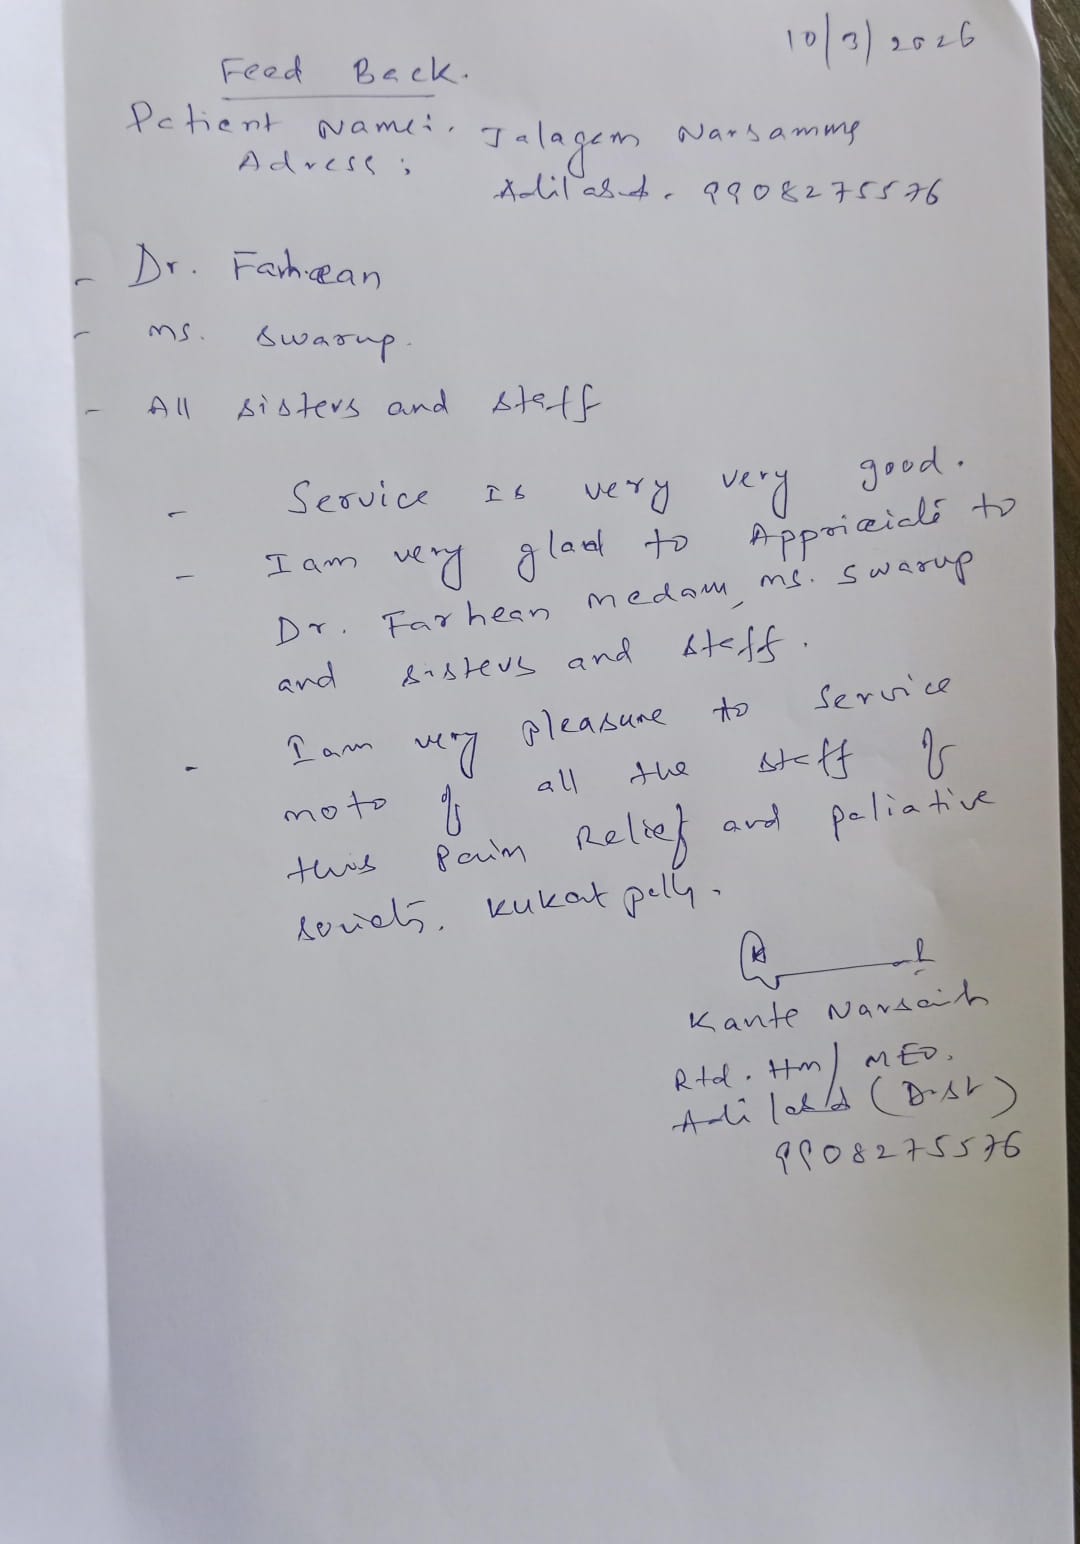 10/3/2026
Feed Back.
Patient Name:. Jalagam Narsamma
Adress: Adilabad. 9908275576
- Dr. Farheean
- ms. Swarup.
- All sisters and staff
- Service Is very very good.
- I am very glad to Appriciate to
Dr. Farhean medam, ms. Swarup
and sisters and staff.
- I am very pleasure to Service
moto of all the staff of
this Pain Relief and paliative
society, kukatpally.
Kante Narsaiah
Rtd. Hm/ MEO.
Adilabad (Dist)
9908275576